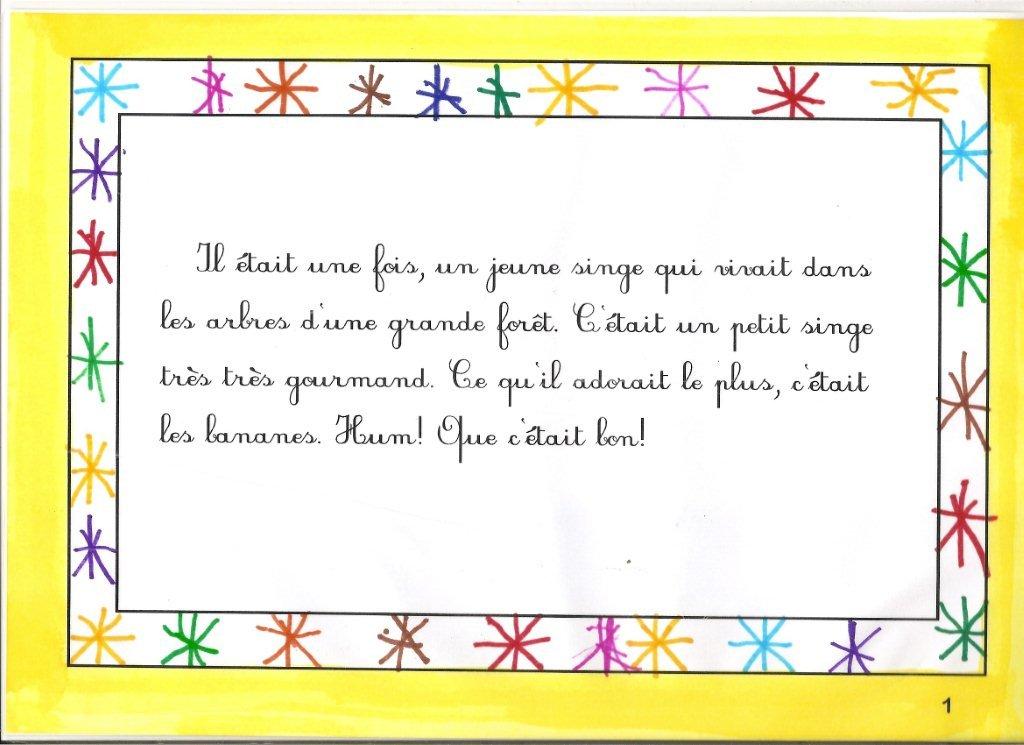 Il était une fois, un jeune singe qui vivait dans
les arbres d'une grande forêt. C'était un petit singe
très très gourmand. Ce qu'il adorait le plus, c'était
les bananes. Hum! Que c'était bon!
1